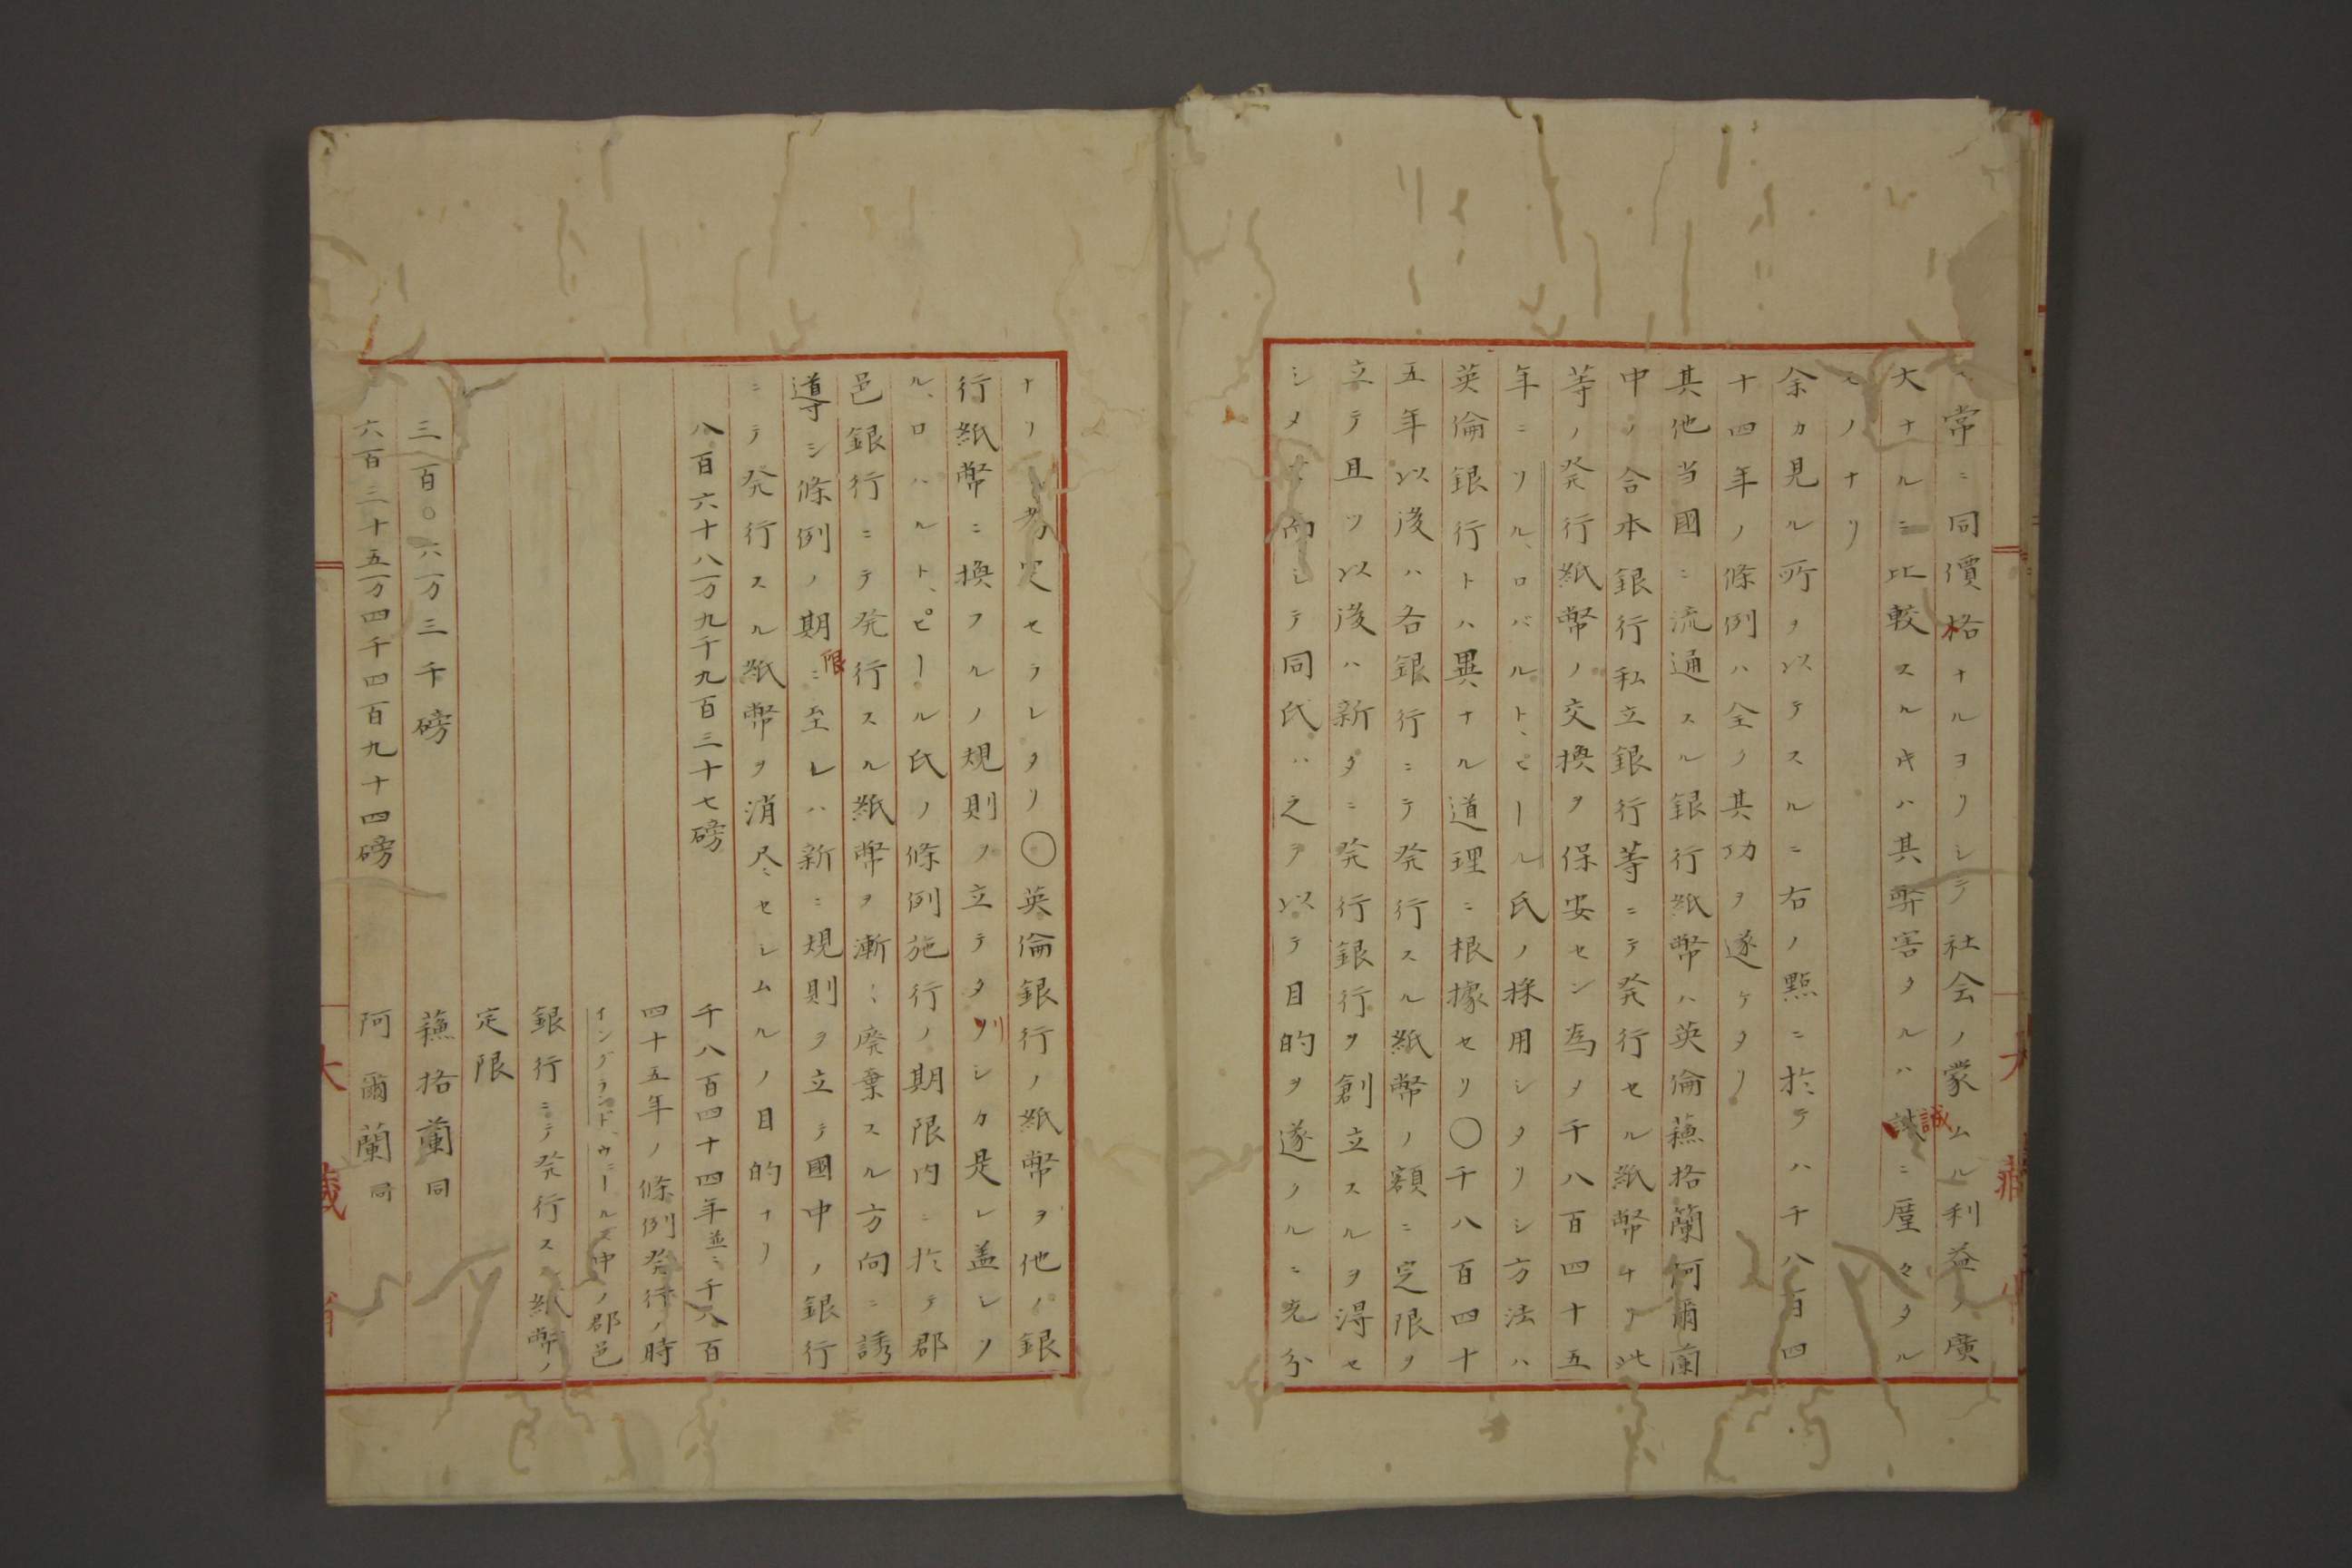 常ニ同價格ナルヨリシテ社会ノ蒙ムル利益ノ廣
大ナルニ比較スルキハ其弊害タルハ誠ニ厘々タル
モノナリ
余カ見ル所ヲ以テスルニ右ノ點ニ於テハ千八百四
十四年ノ條例ハ全ク其功ヲ遂ケタリ
其他当國ニ流通スル銀行紙幣ハ英倫蘓格蘭阿爾蘭
中ノ合本銀行私立銀行等ニテ発行セル紙幣ナリ此
等ノ発行紙幣ノ交換ヲ保安セン為ノ千八百四十五
年ニソル、ロバルト、ピール氏ノ採用シタリシ方法ハ
英倫銀行トハ異ナル道理ニ根據セリ〇千八百四十
五年以後ハ各銀行ニテ発行スル紙幣ノ額ニ定限ヲ
立テ且ツ以後ハ新タニ発行銀行ヲ創立スルヲ得セ
シメス而シテ同氏ハ之ヲ以テ目的ヲ遂クルニ充分
ナリト勘定セラレタリ〇英倫銀行ノ紙幣ヲ他ノ銀
行紙幣ニ換フルノ規則ヲ立テタリシカ是レ盖シソ
ル、ロハルト、ピール氏ノ條例施行ノ期限内ニ於テ郡
邑銀行ニテ発行スル紙幣ヲ漸ミ廃棄スル方向ニ誘
導シ條例ノ期限ニ至レハ新ニ規則ヲ立テ國中ノ銀行
ニテ発行スル紙幣ヲ消尽セシムルノ目的ナリ
八百六十八万九千九百三十七磅 千八百四十四年並ニ千八百
四十五年ノ條例発行ノ時
イングランド、ウェールス中ノ郡邑
銀行ニテ発行ス紙幣ノ
定限
三百〇六万三千磅 蘓格蘭同
六百三十五万四千四百九十四磅 阿爾蘭同
大藏省